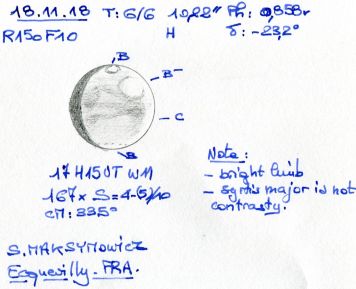 18.11.18 T: 6/6 10,22" Ph: 0,858r
R150F10 H δ: -23,2°
B
B-
C
B
17H150T W11
167x S=4-(5)/10
CM: 335°
Note:
- bright limb
- syrtis major is not
contrasty.
S. MAKSYMOWICZ
Ecquevilly. FRA.